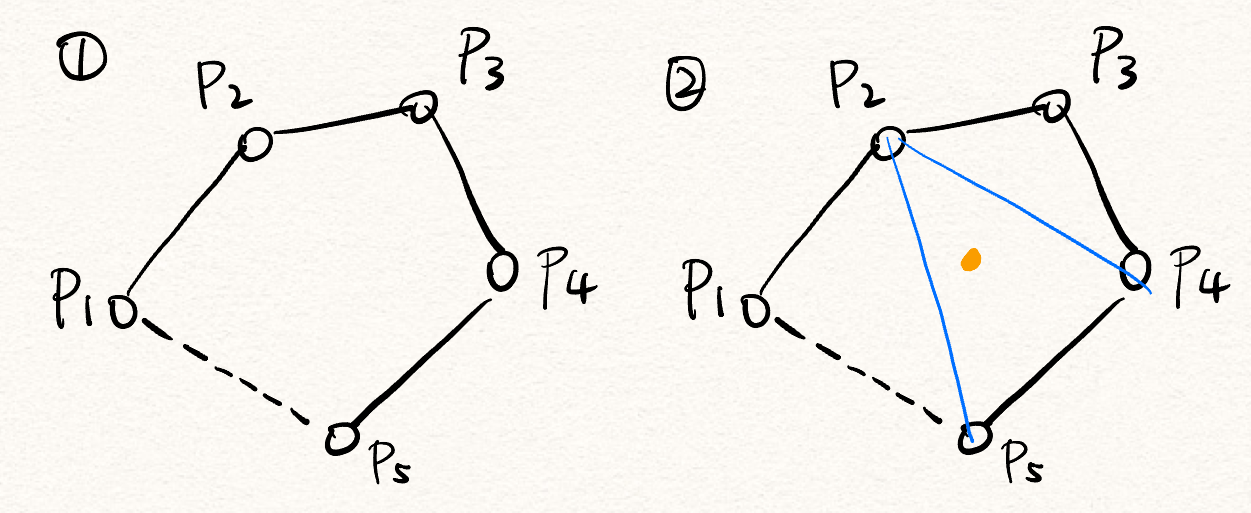 ①
P2
P3
P1
P4
P5
②
P2
P3
P1
P4
P5